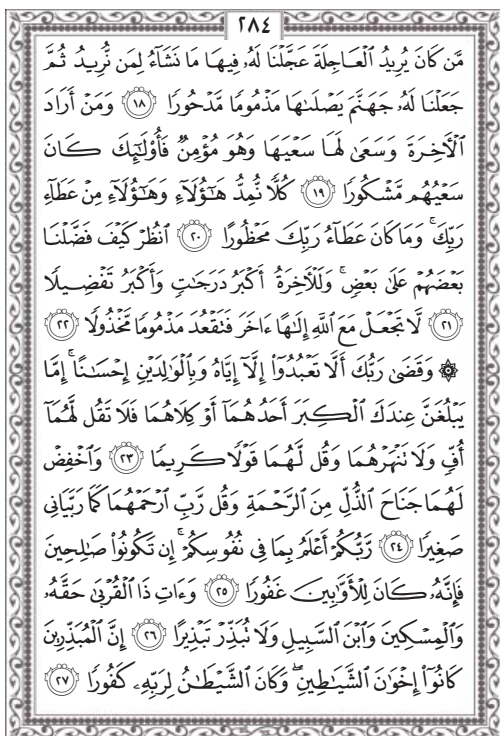 ٢٨٤
مَّن كَانَ يُرِيدُ ٱلْعَاجِلَةَ عَجَّلْنَا لَهُۥ فِيهَا مَا نَشَآءُ لِمَن نُّرِيدُ ثُمَّ
جَعَلْنَا لَهُۥ جَهَنَّمَ يَصْلَىٰهَا مَذْمُومًا مَّدْحُورًا ١٨ وَمَنْ أَرَادَ
ٱلْأٓخِرَةَ وَسَعَىٰ لَهَا سَعْيَهَا وَهُوَ مُؤْمِنٌ فَأُو۟لَٰٓئِكَ كَانَ
سَعْيُهُم مَّشْكُورًا ١٩ كُلًّا نُّمِدُّ هَٰٓؤُلَآءِ وَهَٰٓؤُلَآءِ مِنْ عَطَآءِ
رَبِّكَ ۚ وَمَا كَانَ عَطَآءُ رَبِّكَ مَحْظُورًا ٢٠ ٱنظُرْ كَيْفَ فَضَّلْنَا
بَعْضَهُمْ عَلَىٰ بَعْضٍ ۚ وَلَلْأٓخِرَةُ أَكْبَرُ دَرَجَٰتٍ وَأَكْبَرُ تَفْضِيلًا
٢١ لَّا تَجْعَلْ مَعَ ٱللَّهِ إِلَٰهًا ءَاخَرَ فَتَقْعُدَ مَذْمُومًا مَّخْذُولًا ٢٢
۞ وَقَضَىٰ رَبُّكَ أَلَّا تَعْبُدُوٓا۟ إِلَّآ إِيَّاهُ وَبِٱلْوَٰلِدَيْنِ إِحْسَٰنًا ۚ إِمَّا
يَبْلُغَنَّ عِندَكَ ٱلْكِبَرَ أَحَدُهُمَآ أَوْ كِلَاهُمَا فَلَا تَقُل لَّهُمَآ
أُفٍّ وَلَا تَنْهَرْهُمَا وَقُل لَّهُمَا قَوْلًا كَرِيمًا ٢٣ وَٱخْفِضْ
لَهُمَا جَنَاحَ ٱلذُّلِّ مِنَ ٱلرَّحْمَةِ وَقُل رَّبِّ ٱرْحَمْهُمَا كَمَا رَبَّيَانِى
صَغِيرًا ٢٤ رَّبُّكُمْ أَعْلَمُ بِمَا فِى نُفُوسِكُمْ ۚ إِن تَكُونُوا۟ صَٰلِحِينَ
فَإِنَّهُۥ كَانَ لِلْأَوَّٰبِينَ غَفُورًا ٢٥ وَءَاتِ ذَا ٱلْقُرْبَىٰ حَقَّهُۥ
وَٱلْمِسْكِينَ وَٱبْنَ ٱلسَّبِيلِ وَلَا تُبَذِّرْ تَبْذِيرًا ٢٦ إِنَّ ٱلْمُبَذِّرِينَ
كَانُوٓا۟ إِخْوَٰنَ ٱلشَّيَٰطِينِ ۖ وَكَانَ ٱلشَّيْطَٰنُ لِرَبِّهِۦ كَفُورًا ٢٧